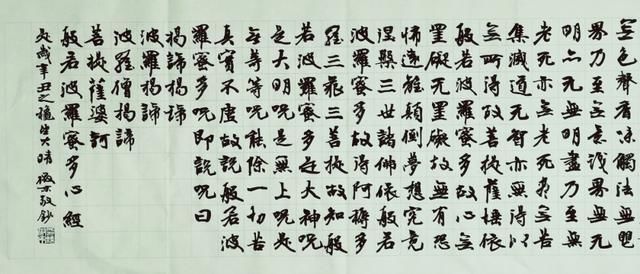 無色聲香味觸法無眼
界乃至無意識界無無
明亦无無明盡乃至無
老死亦無老死盡無苦
集滅道无智亦無得以
無所得故菩提薩埵依
般若波羅蜜多故心無
罣礙无罣礙故無有恐
怖遠離顛倒夢想究竟
涅槃三世諸佛依般若
波羅蜜多故得阿耨多
羅三藐三菩提故知般
若波羅蜜多是大神咒
是大明咒是無上咒是
無等等咒能除一切苦
真實不虛故說般若波
羅蜜多咒即說咒曰
揭諦揭諦
波羅揭諦
波羅僧揭諦
菩提薩婆訶
般若波羅蜜多心經
是歲辛丑之穐敬鈔